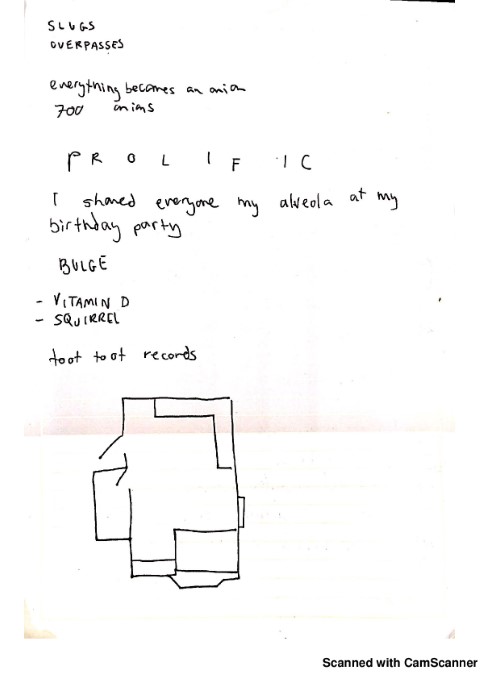 SLUGS
OVERPASSES
everything becomes an onion
700 onions
PROLIFIC
I showed everyone my alveola at my
birthday party
BULGE
- VITAMIN D
- SQUIRREL
toot toot records
Scanned with CamScanner